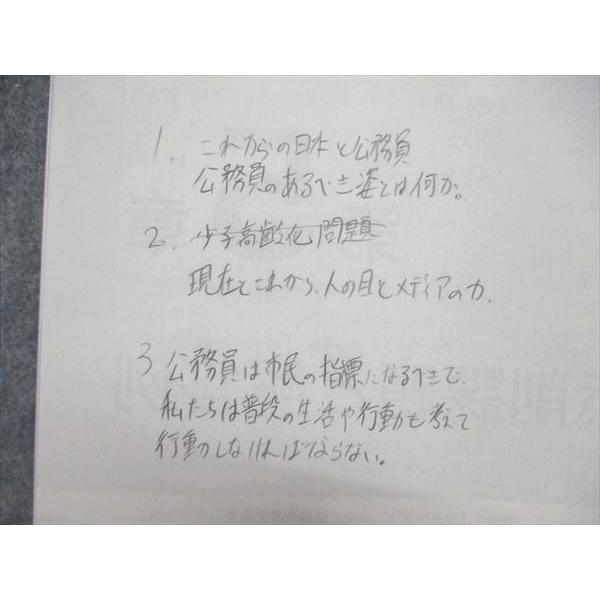 1. これからの日本と公務員
公務員のあるべき姿とは何か。
2. 少子高齢化問題
現在とこれから、人の目とメディアの力、
3 公務員は市民の指標になるべきで、
私たちは普段の生活や行動も考えて
行動しなければならない。